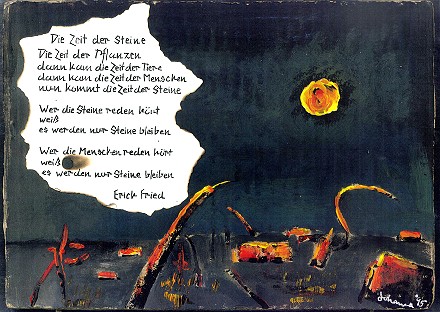 Die Zeit der Steine
Die Zeit der Pflanzen
dann kam die Zeit der Tiere
dann kam die Zeit der Menschen
nun kommt die Zeit der Steine
Wer die Steine reden hört
weiß
es werden nur Steine bleiben
Wer die Menschen reden hört
weiß
es werden nur Steine bleiben
Erich Fried
Johanna